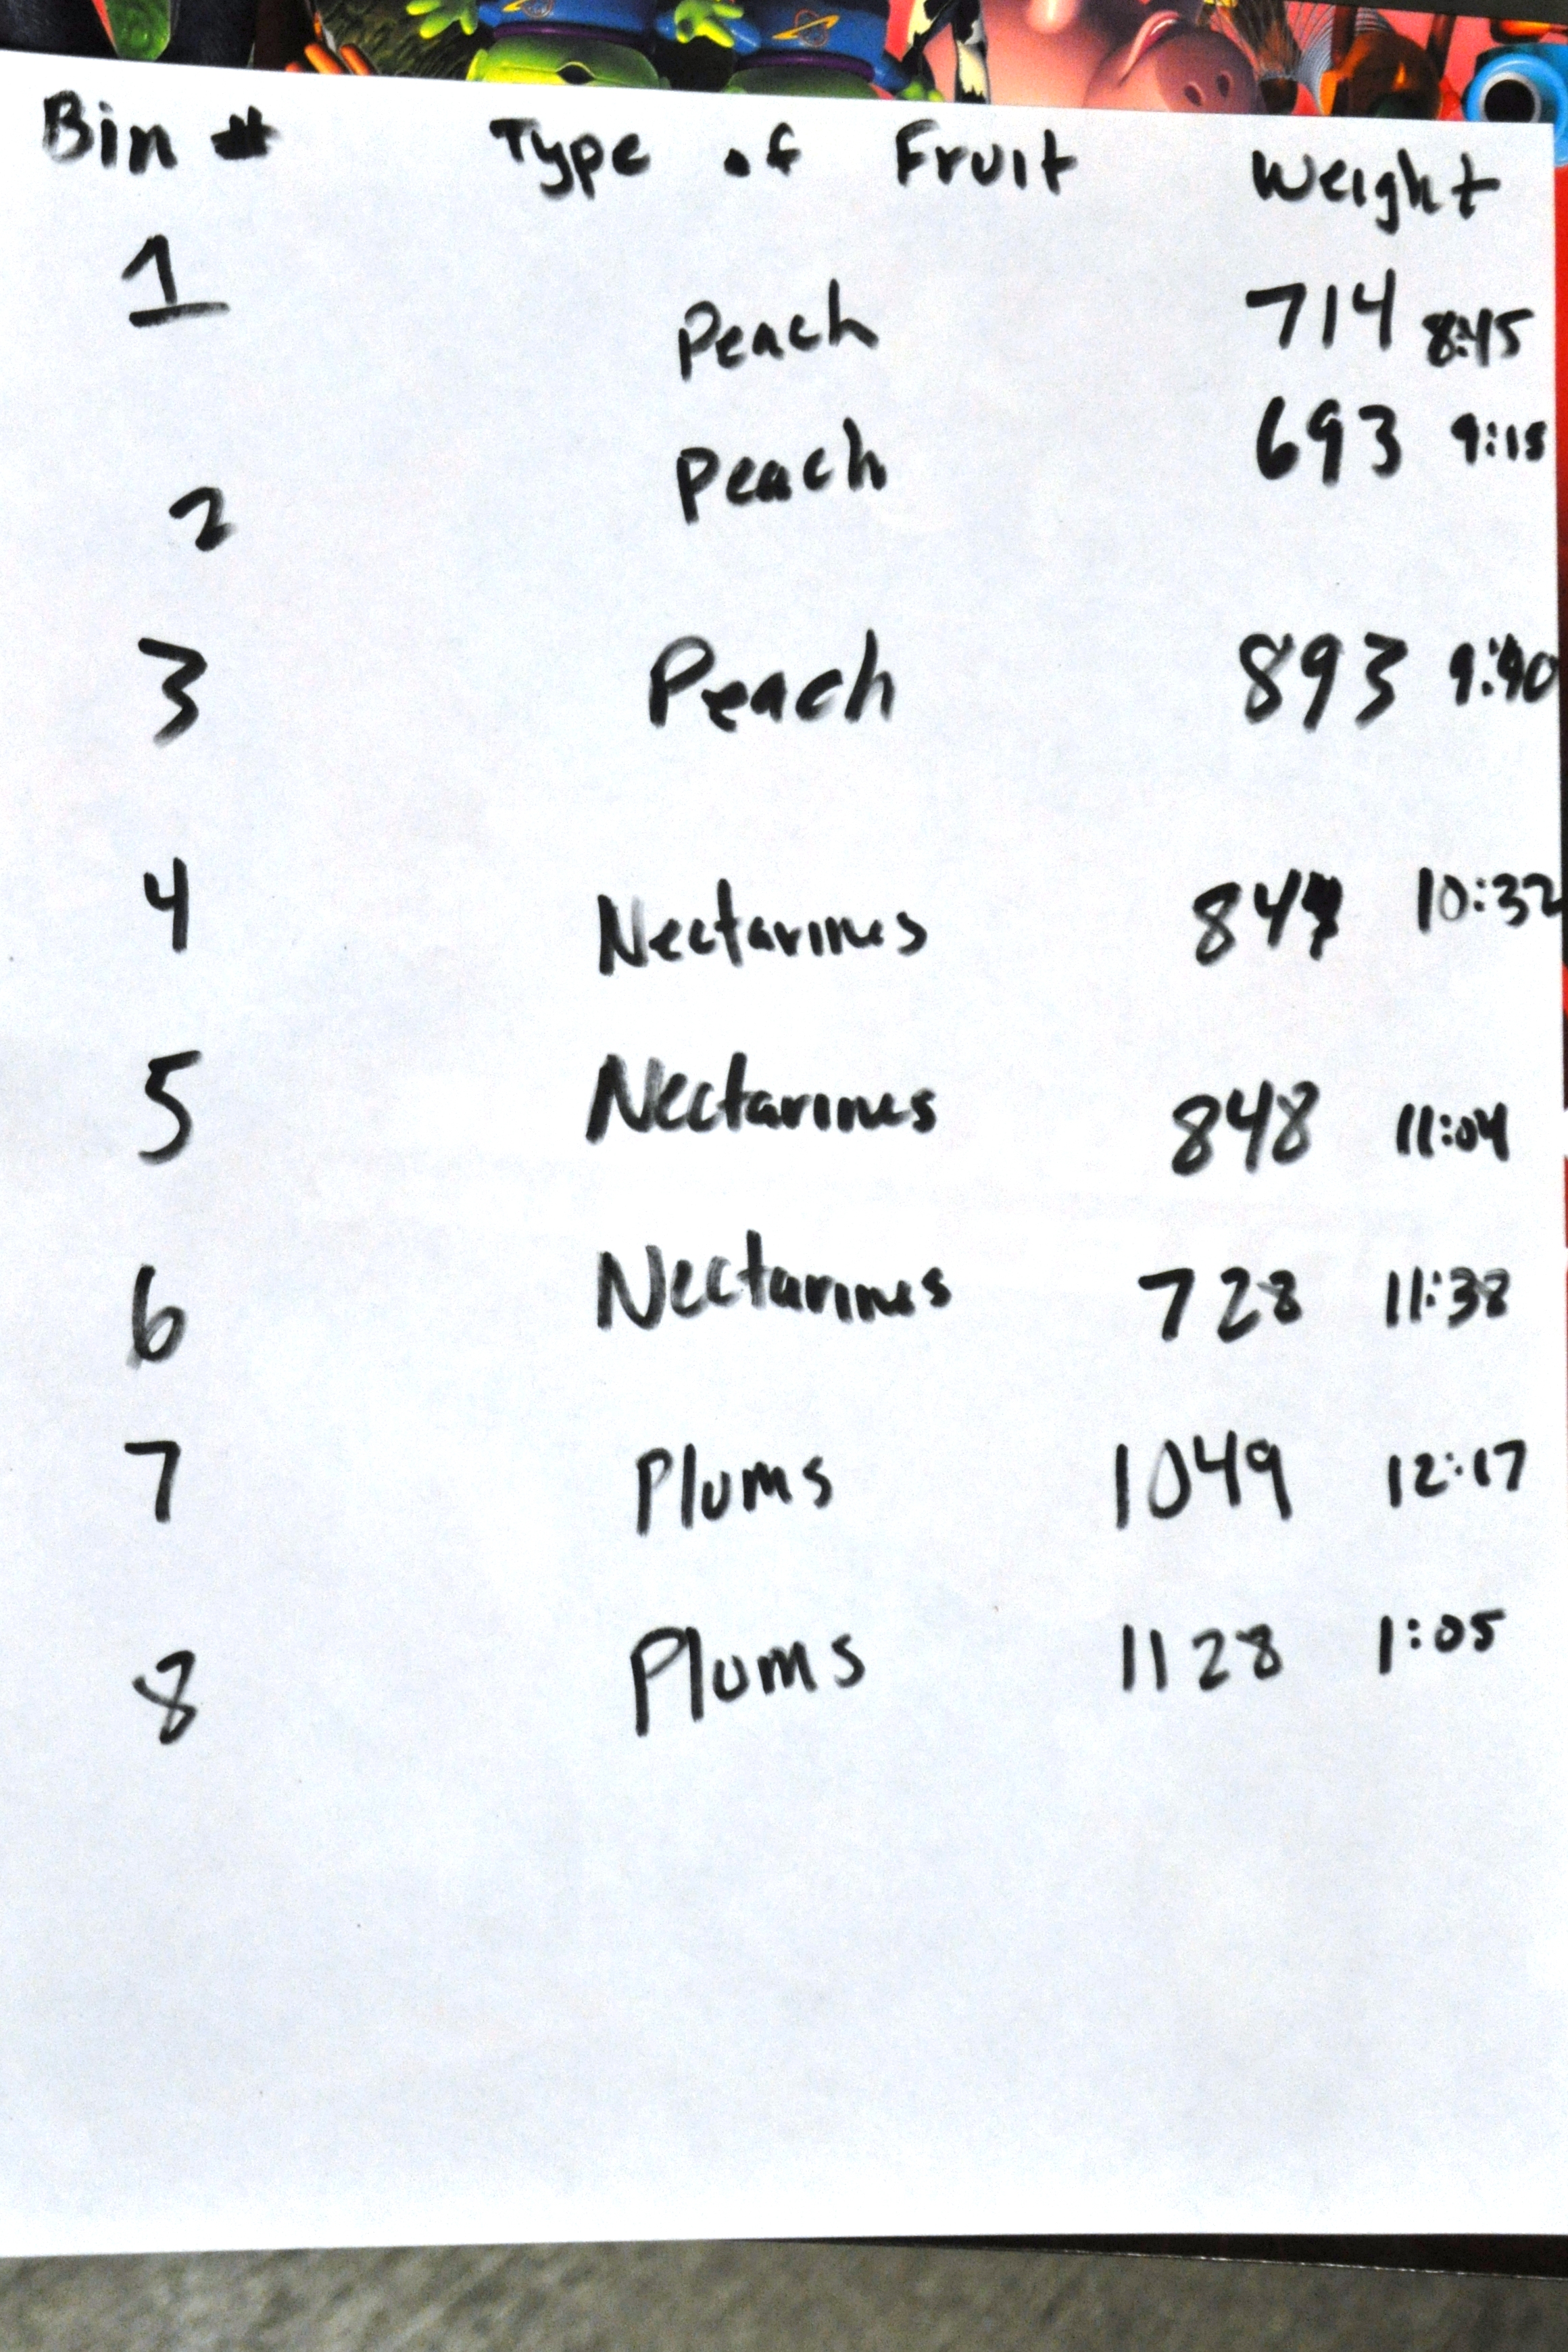 Bin # Type of Fruit Weight
1 Peach 714 8:45
2 Peach 693 9:15
3 Peach 893 9:40
4 Nectarines 10:32
5 Nectarines 848 11:04
6 Nectarines 728 11:38
7 Plums 1049 12:17
8 Plums 1128 1:05